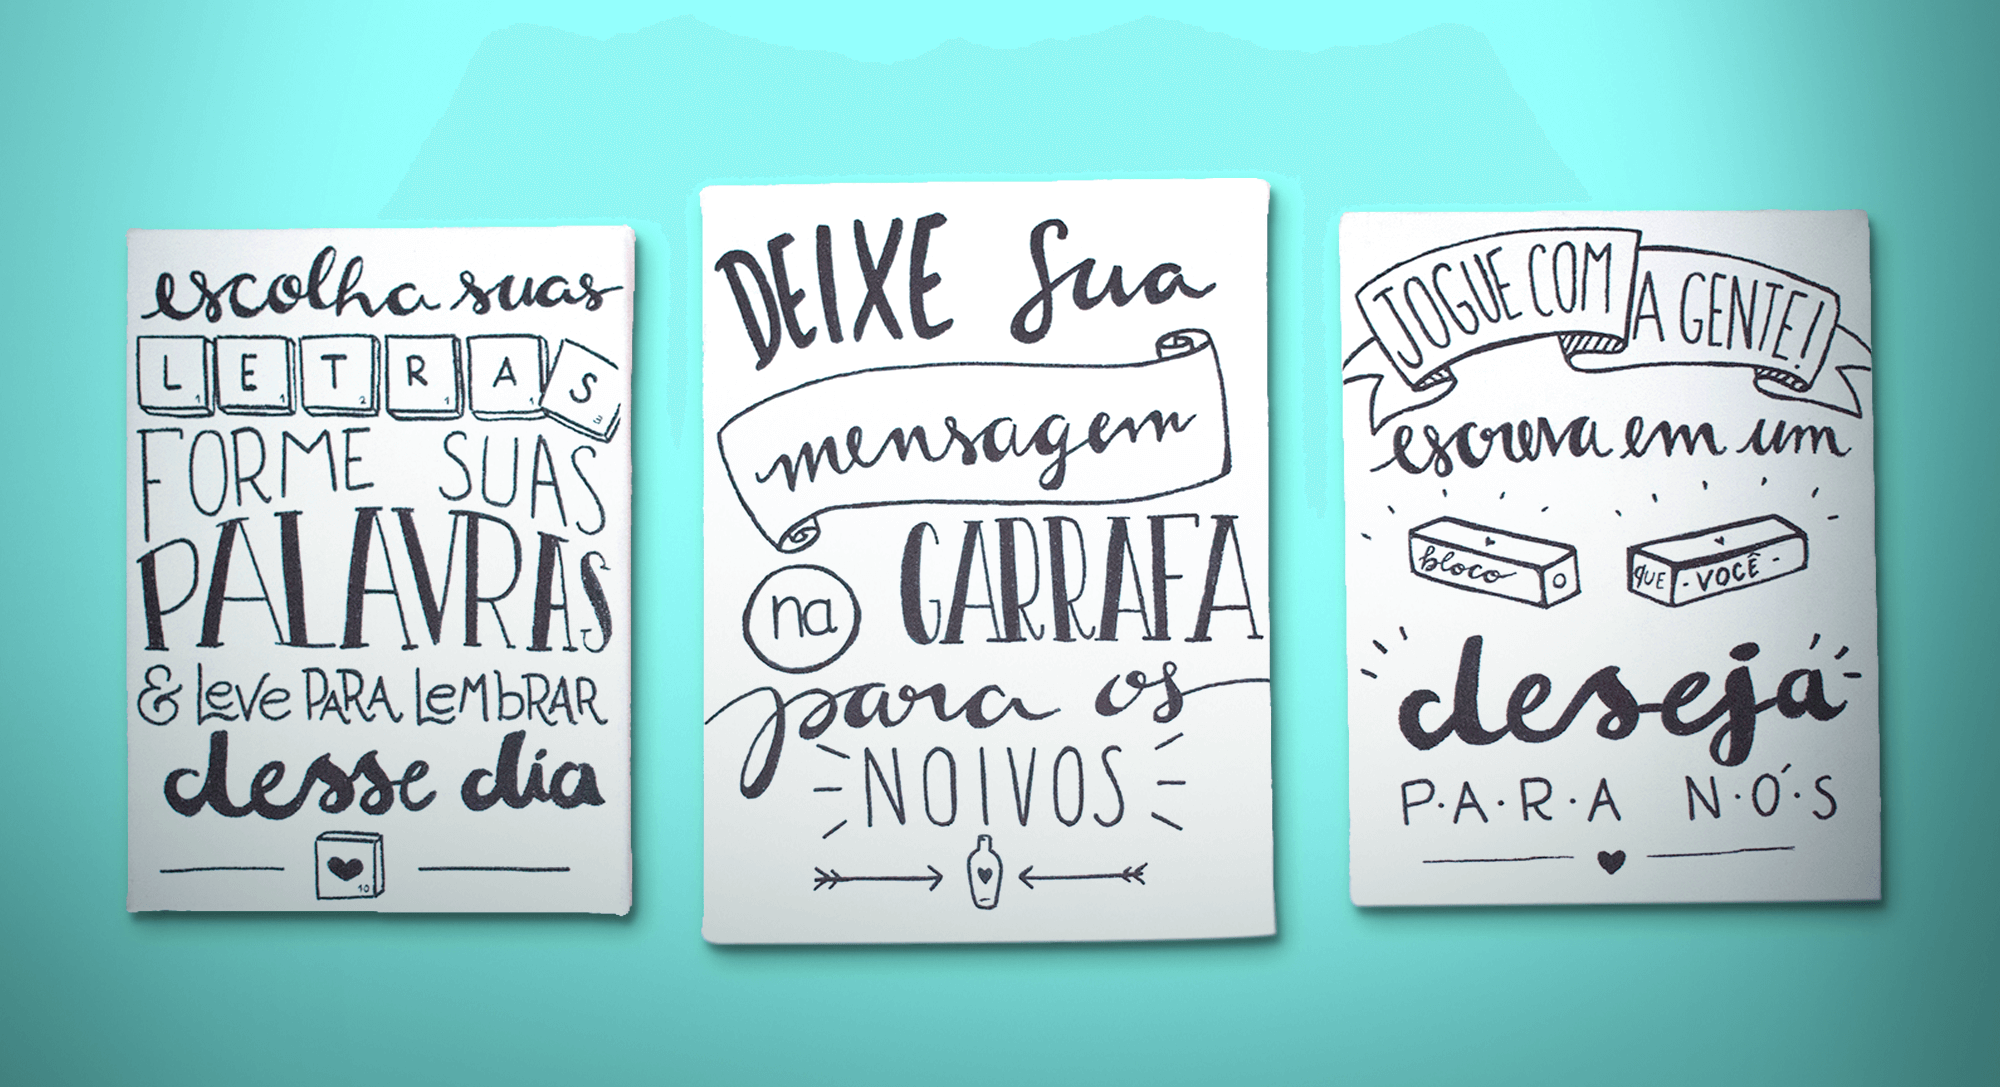 escolha suas
LETRAS
FORME SUAS
PALAVRAS
& Leve PARA LembRAR
desse dia
10
DEIXE sua
mensagem
na GARRAFA
para os
NOIVOS
JOGUE COM A GENTE!
escreva em um
bloco QUE -VOCÊ-
deseja
P·A·R·A N·Ó·S